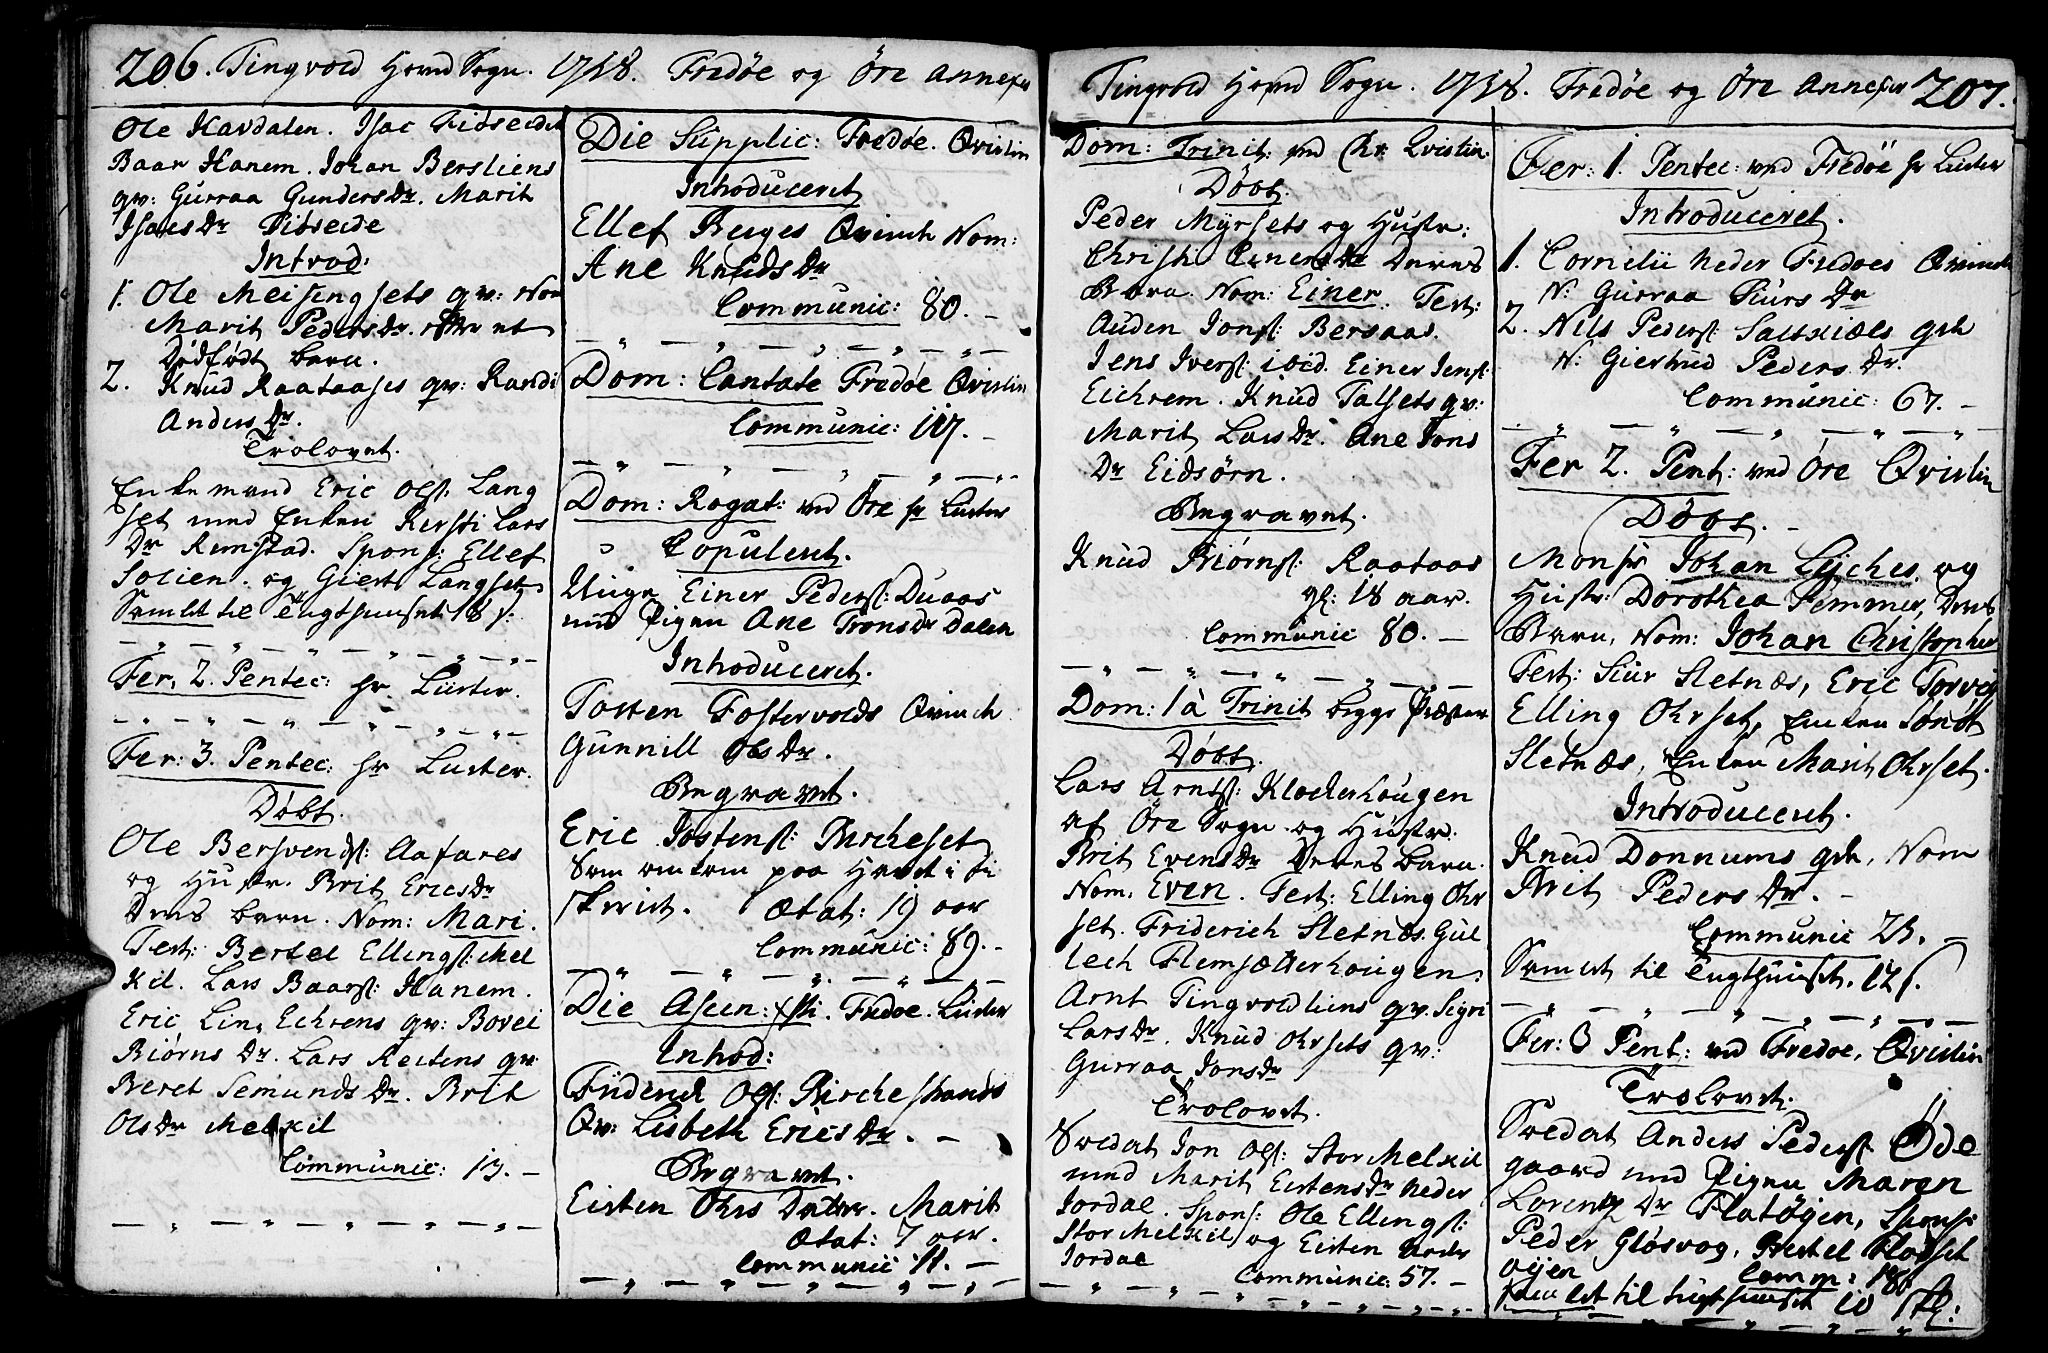 206. Tingvold Hovud Sogn. 1758. Fredøe og Öre Annexer
Ole Havdalen. Isac Fiøseide
Baar Hanem. Johan Bersliens
qv: Gurraa Gunders Dr. Marit
Isaks Dr Fiøseide
Introd:
1. Ole Meisingsets qv: Nom
Marit Peders Dr. et
dødfødt barn.
2. Knud Raataases qv: Randi
Anders Dr.
Trolovet.
Enkemand Eric Ols: Lang
set med Enken Kersti Lars
Dr Remstad. Spons: Ellef
Solien. og Giert Langset
Samlet til Tugthuuset 18 s:
Fer. 2. Pentec: hr Lüster.
Fer: 3. Pentec: hr Lüster.
Døbt.
Ole Bersvends: Aafares
og Hustr. Brit Erics Dr
Deres barn. Nom: Mari.
Test: Bertel Ellings: Mel
Kil. Lars Baars: Hanem.
Eric Lin, Echrens qv: Bovei
Biørns Dr. Lars Restens qv:
Beret Semunds Dr. Brit
Ols Dr Melkil
Communic: 13. -
Die Supplic: Fredøe. Qvislin
Introduceret
Ellef Berges Qvinde Nom:
Ane Knuds Dr
Communic: 80. -
Dom: Cantate Fredøe Qvislin
Communic: 117. -
Dom: Rogat: ved Öre hr Lüster
Copuleret.
Unge Einer Peders: Duaas
med Pigen Ane Trons Dr Dalen
Introduceret.
Tosten Fostervolds Qvinde
Gunnill Ols Dr.
Begravet.
Eric Jostens: Bircheset
Som omkom paa Havet i Fi
skeriet. Ætat: 19 aar
Communic: 89. -
Die Ascen: Xsti. Fredøe. Lüster
Introd:
Friderich Ols: Birchestrands
Qv: Lisbeth Erics Dr. -
Begravet.
Eisten Ohrs Datter. Marit
Ætat: 7 aar.
Communic 11. -
Tingvold Hovud Sogn. 1758. Fredøe og Öre Annexer 207.
Dom: Trinit: ved Hr Qvislin.
Døbt.
Peder Myrsets og Hustr:
Christi Einers Dr Deres
Barn. Nom: Einer. Test:
Auden Jons: Bersaas.
Jens Ivers: ibid. Einer Jens:
Eichrem. Knud Talsets qv:
Marit Lars Dr. Ane Jons
Dr Eidsörn.
Begravet.
Knud Biørns: Raataas
gl: 18 aar.
Communic 80. -
Dom: 1 à Trinit begge Præster
Døbt.
Lars Arnts: Kloderhougen
af Öre Sogn og Hustr:
Brit Evens Dr Deres barn.
Nom. Even. Test: Elling Ohr
set. Friderich Sletnæs. Gul
lech Flemsætterhougen.
Arnt Tingvoldliens qv. Sigri
Lars Dr. Knud Ohrsets qv:
Gurraa Jons Dr
Trolovet.
Soldat Jon Ols: StorMelkil
med Marit Eistens Dr Neder
Jordal. Spons: Ole Ellings:
StorMelkil og Eisten Neder
Jordal
Communic: 57. -
Fer: 1. Pentec: ved Fredöe hr Lüster
Introduceret.
1. Cornelii Neder Fredøes Qvinde
N: Gurraa Siurs Dr
2. Nils Peders: Saltkiæls qv
N: Giertrud Peders Dr.
Communic: 67. -
Fer 2. Pent: ved Öre Qvislin
Døbt. -
Monsr Johan Lyches og
Hustr: Dorothea Femmer, Deres
Barn, Nom: Johan Christopher
Test: Siur Sletnæs, Eric Torvig
Elling Ohrset, Enken Sönöt
Sletnæs, Enken Marit Ohrset.
Introduceret.
Knud Donnums qv, Nom
Brit Peders Dr. -
Communic 23. -
Samlet til Tugthuuset. 12 s.
Fer: 3 Pent: ved Fredøe, Qvislin
Trolovet.
Soldat Anders Peders: Öde
gaard med Pigen Maren
Lorentz Dr Flatøgen, Spons:
Peder Gløsvog, Bertel Flatset
øien Comm: 186
Samlet til Tugthuuset 10 sk: